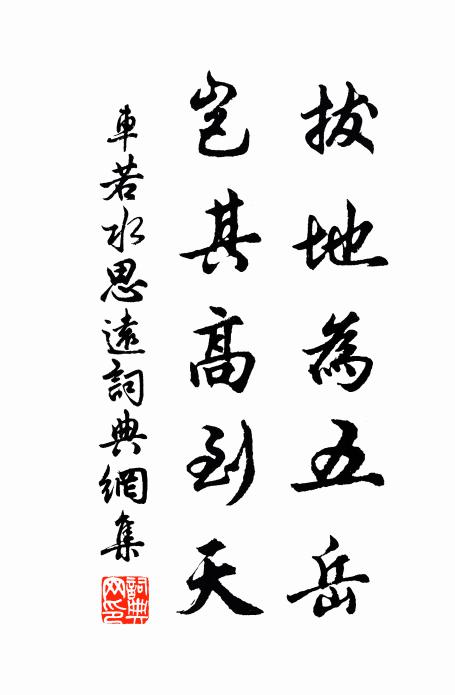 拔地為五岳
豈其高到天
車若水思遠詞典網集
詞典網印